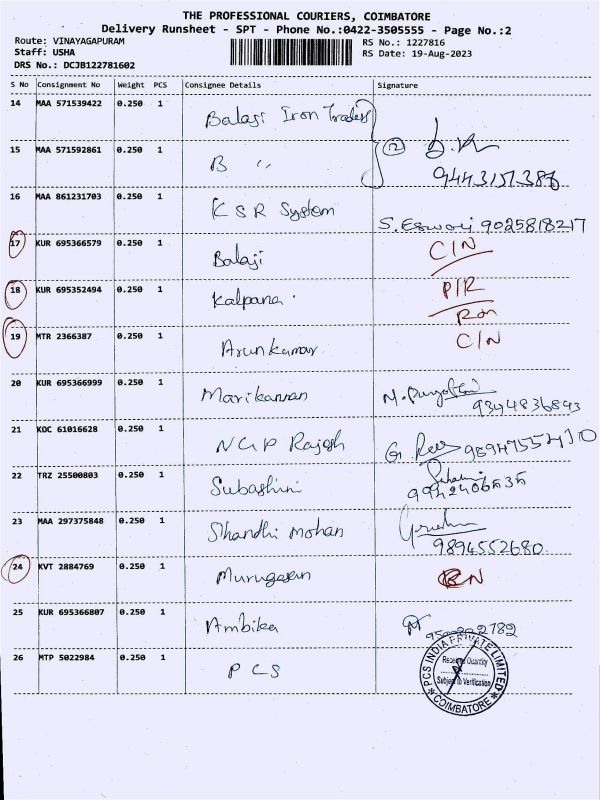 THE PROFESSIONAL COURIERS, COIMBATORE
Delivery Runsheet - SPT - Phone No.:0422-3505555 - Page No.:2
Route: VINAYAGAPURAM
Staff: USHA
DRS No.: DCJB122781602
RS No.: 1227816
RS Date: 19-Aug-2023
S No Consignment No Weight PCS Consignee Details Signature
14 MAA 571539422 0.250 1 Balaji Iron Traders
15 MAA 571592861 0.250 1 B " 2
16 MAA 861231703 0.250 1 KSR System S. Eswari 9025818217
17 KUR 695366579 0.250 1 Balaji C/N
18 KUR 695352494 0.250 1 Kalpana P/R
19 MTR 2366387 0.250 1 Arunkumar C/N
20 KUR 695366999 0.250 1 Marikannan 9344836843
21 KOC 61016628 0.250 1 NGP Rajesh
22 TRZ 25500803 0.250 1 Subashini
23 MAA 297375848 0.250 1 Shandhi Mohan 9894552680
24 KVT 2884769 0.250 1 Murugesan
25 KUR 695366807 0.250 1 Ambika
26 MTP 5022984 0.250 1 PCS
PCS INDIA PRIVATE LIMITED
Received Quantity
Subject to Verification
COIMBATORE